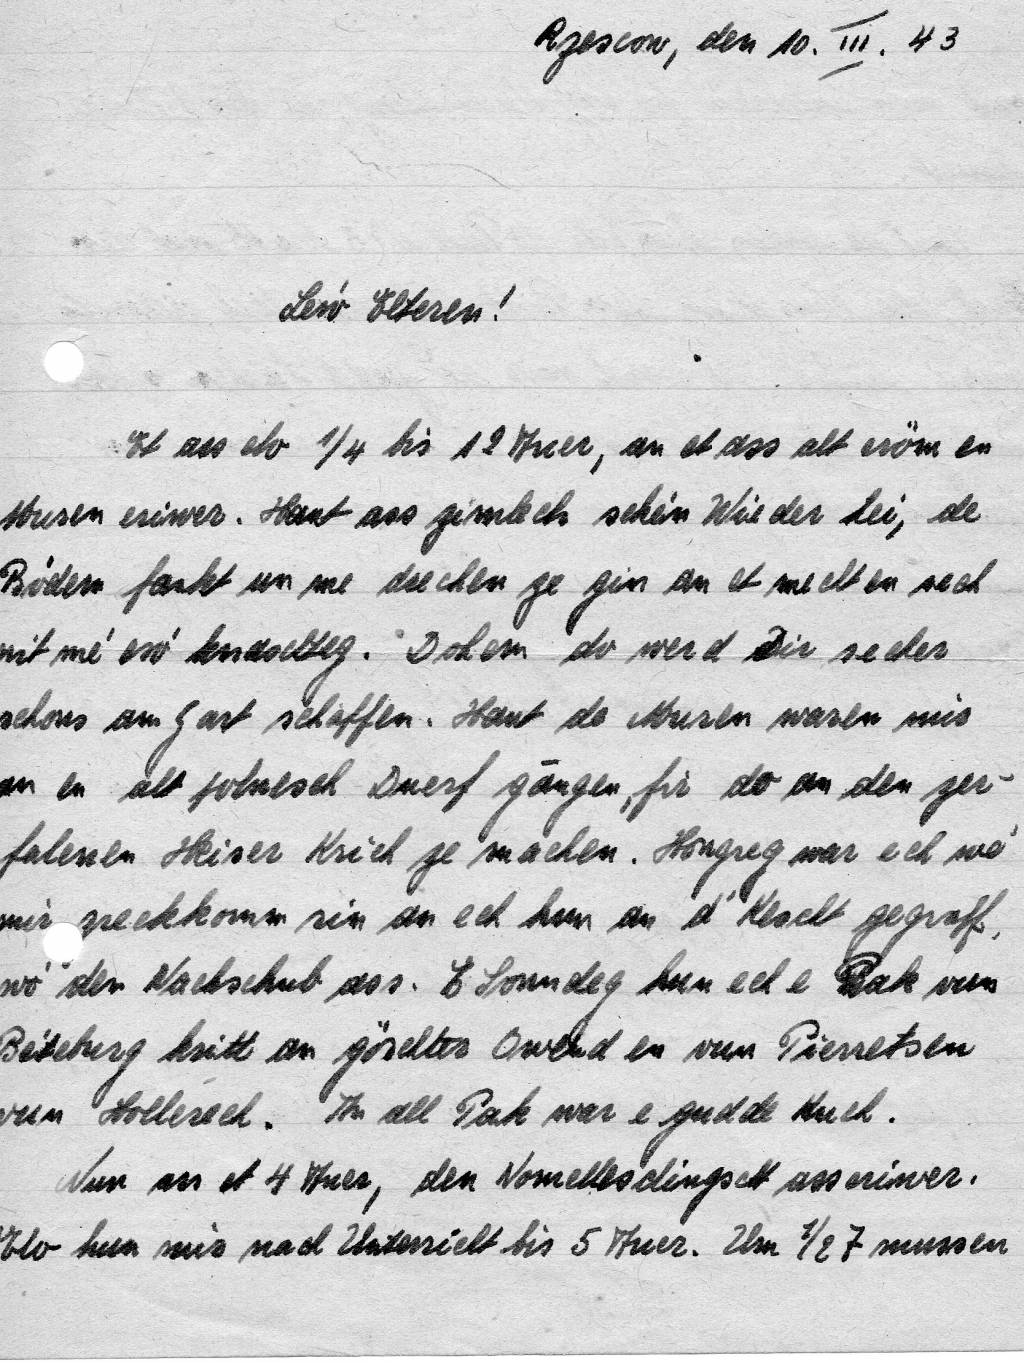 Rzescow, den 10. III. 43
Leiw Elteren!
Et ass elo 1/4 bis 12 Auer, an et ass alt eröm en
Muren eriwer. Haut ass zimlech schéin Wieder hei, de
Bödem fänkt un me drechen ze gin an et mecht en sech
nit mé esó knaschteg. Dohem do werd Dir secher
schons am Gart schaffen. Haut de Muren waren mir
an en alt polnesch Duerf gângen, fir do an den zer-
falenen Heiser Krich ze machen. Hongreg war ech wé
mir zreckkomm sin an ech hun an d' Këscht gegraff,
wó den Nachschub ass. E Sonndeg hun ech e Pak vun
Béteburg kritt an göschter Owend en vum Pierretsen
vun Hollerech. An all Pak war e gudde Kuch.
Nun as et 4 Auer, den Nomettesdingscht ass eriwer.
Elo hun mir nach Unterricht bis 5 Auer. Um 1/2 7 mussen